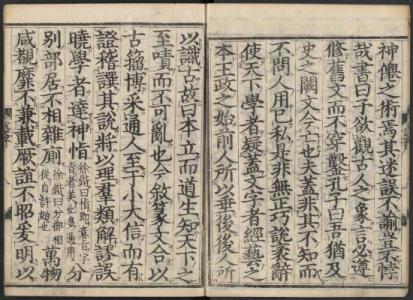 神僊之術焉其迷誤不諭豈不悖
哉書曰予欲觀古人之象言必遵
修舊文而不穿鑿孔子曰吾猶及
史之闕文今亡也夫蓋非其不知而
不問人用己私是非無正巧說衺辭
使天下學者疑蓋文字者經藝之
本王政之始前人所以垂後後人所
以識古故曰本立而道生知天下之
至嘖而不可亂也今敘篆文合以
古籀博采通人至于小大信而有
證稽譔其說將以理羣類解謬誤
曉學者達神恉徐鍇曰恉即意旨字旨者美也多通用分
別部居不相雜廁徐鍇曰分部相從自許始也萬物
咸覩靡不兼載厥誼不昭爰明以